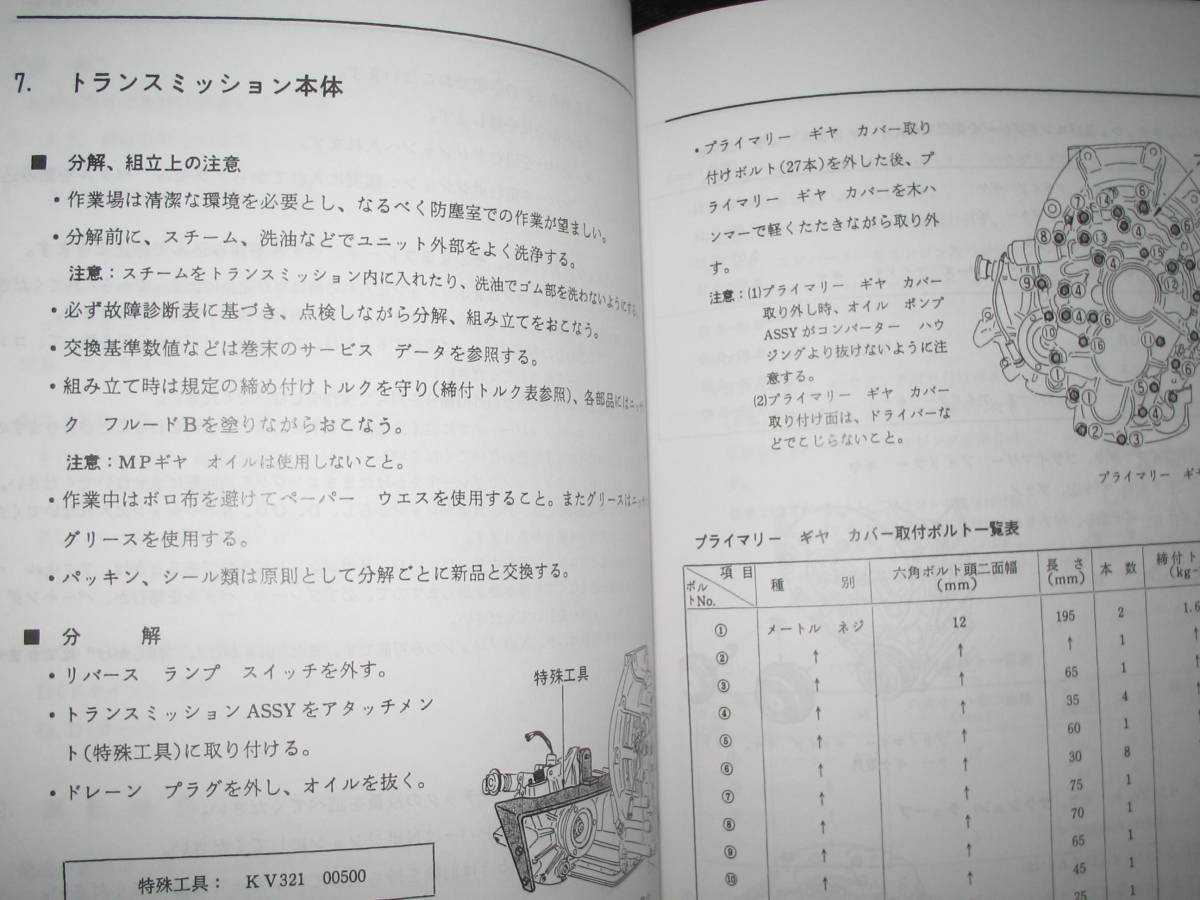 7. トランスミッション本体
■ 分解、組立上の注意
・作業場は清潔な環境を必要とし、なるべく防塵室での作業が望ましい。
・分解前に、スチーム、洗油などでユニット外部をよく洗浄する。
注意：スチームをトランスミッション内に入れたり、洗油でゴム部を洗わないようにする。
・必ず故障診断表に基づき、点検しながら分解、組み立てをおこなう。
・交換基準数値などは巻末のサービス データを参照する。
・組み立て時は規定の締め付けトルクを守り(締付トルク表参照)、各部品にはニッサンマチッ
ク フルードBを塗りながらおこなう。
注意：MPギヤ オイルは使用しないこと。
・作業中はボロ布を避けてペーパー ウエスを使用すること。またグリースはニッ
グリースを使用する。
・パッキン、シール類は原則として分解ごとに新品と交換する。
■ 分 解
・リバース ランプ スイッチを外す。
・トランスミッションASSYをアタッチメン
ト(特殊工具)に取り付ける。
・ドレーン プラグを外し、オイルを抜く。
特殊工具
特殊工具： KV321 00500
・プライマリー ギヤ カバー取り
付けボルト(27本)を外した後、プ
ライマリー ギヤ カバーを木ハ
ンマーで軽くたたきながら取り外
す。
注意：(1)プライマリー ギヤ カバー
取り外し時、オイル ポンプ
ASSYがコンバーター ハウ
ジングより抜けないように注
意する。
(2)プライマリー ギヤ カバー
取り付け面は、ドライバーな
どでこじらないこと。
プライマリー ギヤ
プライマリー ギヤ カバー取付ボルト一覧表
項目 ボルトNo. 種 別 六角ボルト頭二面幅(mm) 長さ(mm) 本 数 締付ト (kg-
① メートル ネジ 12 195 2 1.6
② ↑ ↑ ↑ 1 ↑
③ ↑ ↑ 65 1 ↑
④ ↑ ↑ 35 4 ↑
⑤ ↑ ↑ 60 1
⑥ ↑ ↑ 30 8
⑦ ↑ ↑ 75 1
⑧ ↑ ↑ 70 1
⑨ ↑ ↑ 65 1
⑩ ↑ ↑ 45 1
25 1